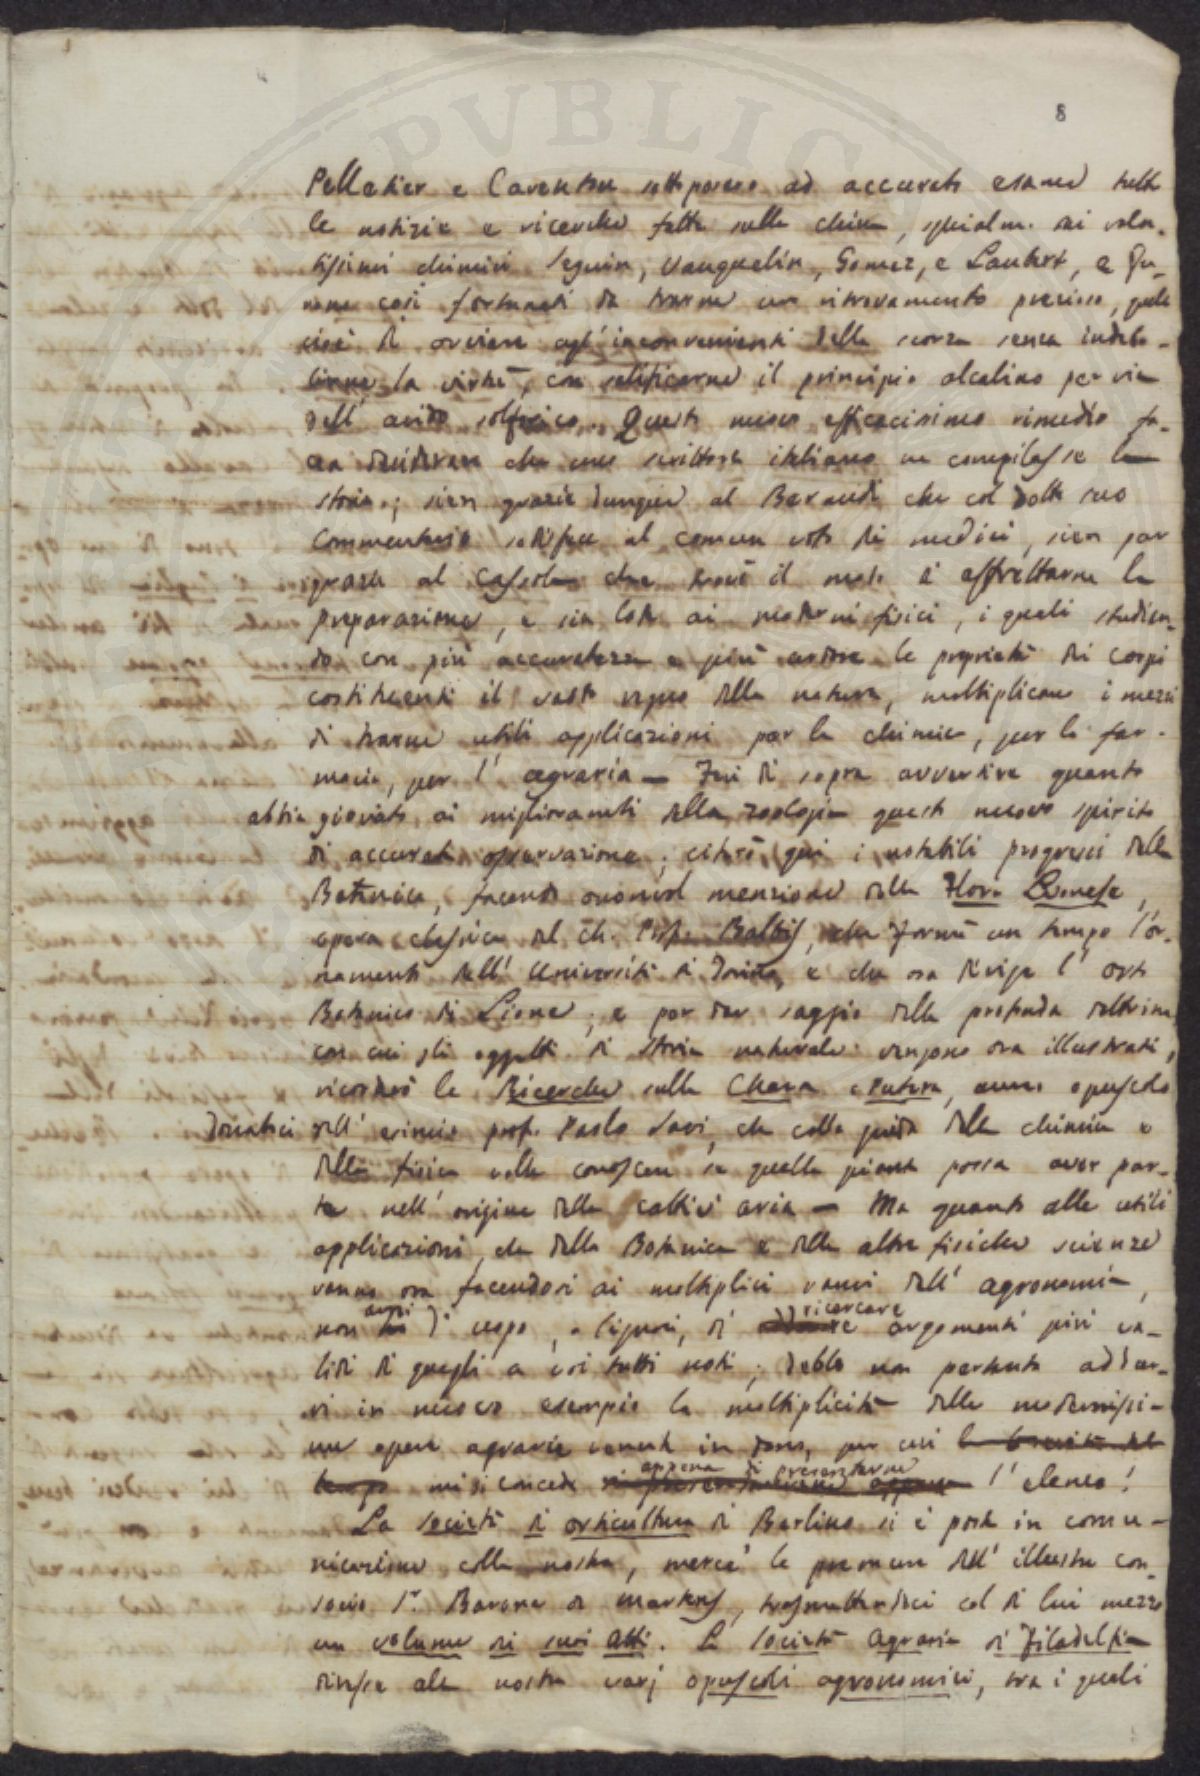 8
Pelletier e Caventou sottoposero ad accurato esame tutte
le notizie e ricerche fatte sulla china, spicialm. dai valen-
tissimi chimici Seguin, Vauquelin, Gomez, e Laubert, e fu-
rono così fortunati da trarne un ritrovamento prezioso, quello
cioè di ovviare agl'inconvenienti della scorza senza indebo-
lirne la virtù, con salificarne il principio alcalino per via
dell'acido solforico. Questo nuovo efficacissimo rimedio fa-
cea desiderare che uno scrittore italiano ne compilasse la
storia; sien grazie dunque al Beraudi che col dotto suo
Commentario sodisfece al comun voto dei medici, sien pur
grazie al Cassola che trovò il modo d'affrettarne la
preparazione, e sia lode ai moderni fisici, i quali studian-
do con più accuratezza e più ardore le proprietà dei corpi
costituenti il vasto regno della natura, moltiplicano i mezzi
di trarne utili applicazioni per la chimica, per la far-
macia, per l'agraria — Feci di sopra avvertire quanto
abbia giovato ai miglioramenti della zoologia questo nuovo spirito
di accurata osservazione; citerò qui i notabili progressi della
Botanica, facendo onorevol menzione della Flora Lionese,
opera classica del ch. Prof. Balbis, che formò un tempo l'or-
namento dell'Università di Torino, e che ora dirige l'Orto
Botanico di Lione; e per dar saggio della profonda dottrina
con cui gli oggetti di storia naturale vengono ora illustrati,
ricorderò le Ricerche sulla Chara e Putura, aureo opuscolo
Donatoci dell'esimio prof. Paolo Savi, che colla guida della chimica e
della fisica volle conoscere se quella pianta possa aver par-
te nell'origine della cattiv'aria — Ma quanto alle utili
applicazioni, che della Botanica e delle altre fisiche scienze
vanno ora facendosi ai moltiplici rami dell'agronomia,
non avvi d'uopo, o Signori, di ricercare argomenti più va-
lidi di quegli a voi tutti noti; debbo non pertanto addur-
vi in nuovo esempio la moltiplicità delle modernissi-
me opere agrarie venute in dono, per cui la brevità del
tempo mi si concede appena di presentarne l'elenco!
La Società di orticultura di Berlino si è posta in comu-
nicazione colla nostra, mercè le premure dell'illustre con-
socio Sr. Barone di Martens, trasmettendoci col di lui mezzo
un volume dei suoi atti. La Società Agraria di Filadelfia
diresse alla nostra varj opuscoli agronomici, tra i quali